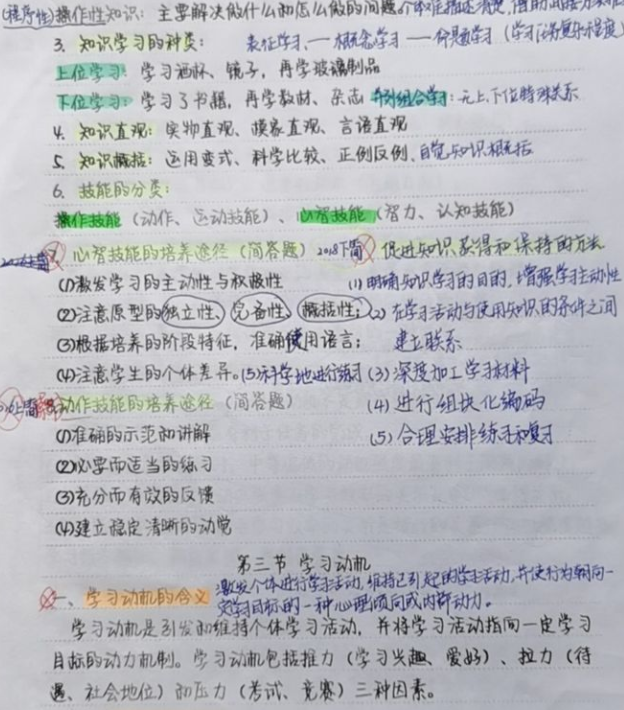 (程序性)操作性知识：主要解决做什么和怎么做的问题。个体难描述清楚，借助
3. 知识学习的种类： 表征学习、— 概念学习 — 命题学习 (学习任务复杂程度)
上位学习：学习酒杯、镜子，再学玻璃制品
下位学习：学习了书籍，再学教材、杂志 并列组合学习：无上、下位特殊关系
4. 知识直观：实物直观、模象直观、言语直观
5. 知识概括：运用变式、科学比较、正例反例、自觉知识概括
6. 技能的分类：
操作技能（动作、运动技能）、心智技能（智力、认知技能）
7 心智技能的培养途径（简答题）2018下简 促进知识获得和保持的方法
(1)激发学习的主动性与积极性 (1) 明确知识学习的目的，增强学习主动性
(2)注意原型的独立性、完备性、概括性； (2) 在学习活动与使用知识的条件之间
(3)根据培养的阶段特征，准确使用语言； 建立联系
(4)注意学生的个体差异。(5)科学地进行练习 (3) 深度加工学习材料
动作技能的培养途径（简答题） (4) 进行组块化编码
(1)准确的示范和讲解 (5) 合理安排练习和复习
(2)必要而适当的练习
(3)充分而有效的反馈
(4)建立稳定清晰的动觉
第三节 学习动机
一、学习动机的含义 激发个体进行学习活动，维持已引起的学习活动，并使行为朝向一
定学习目标的一种心理倾向或内部动力。
学习动机是引发和维持个体学习活动，并将学习活动指向一定学习
目标的动力机制。学习动机包括推力（学习兴趣、爱好）、拉力（待
遇、社会地位）和压力（考试、竞赛）三种因素。